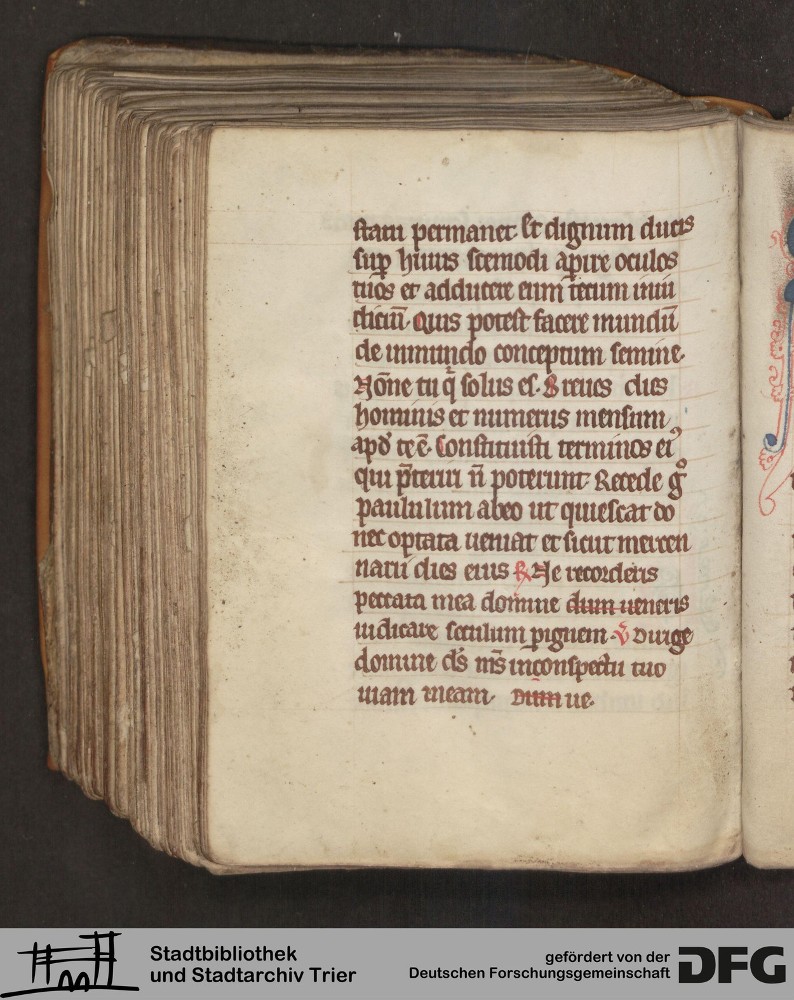 statu permanet Et dignum ducis
sup̄ huius scemodi aꝑire oculos
tuos et adducere eum tecum in iu
diciū. Quis potest facere mundū
de inmundo conceptum semine.
Nōne tu q̄ solus es. Breues dies
hominis et numerus mensium
apd̾ te ē. Constituisti terminos ei᾿
qui p̄teriri n̄ poterunt Recede gͦ
paululum ab eo ut quiescat do
nec optata ueniat et sicut mercen
narii dies eius ℟ Ne recorderis
peccata mea domine dum ueneris
iudicare seculum ꝑ ignem. ℣ Dirige
domine ds̄ ms̄ in conspectu tuo
uiam meam. Dum ue.
Stadtbibliothek
und Stadtarchiv Trier
gefördert von der
Deutschen Forschungsgemeinschaft
DFG